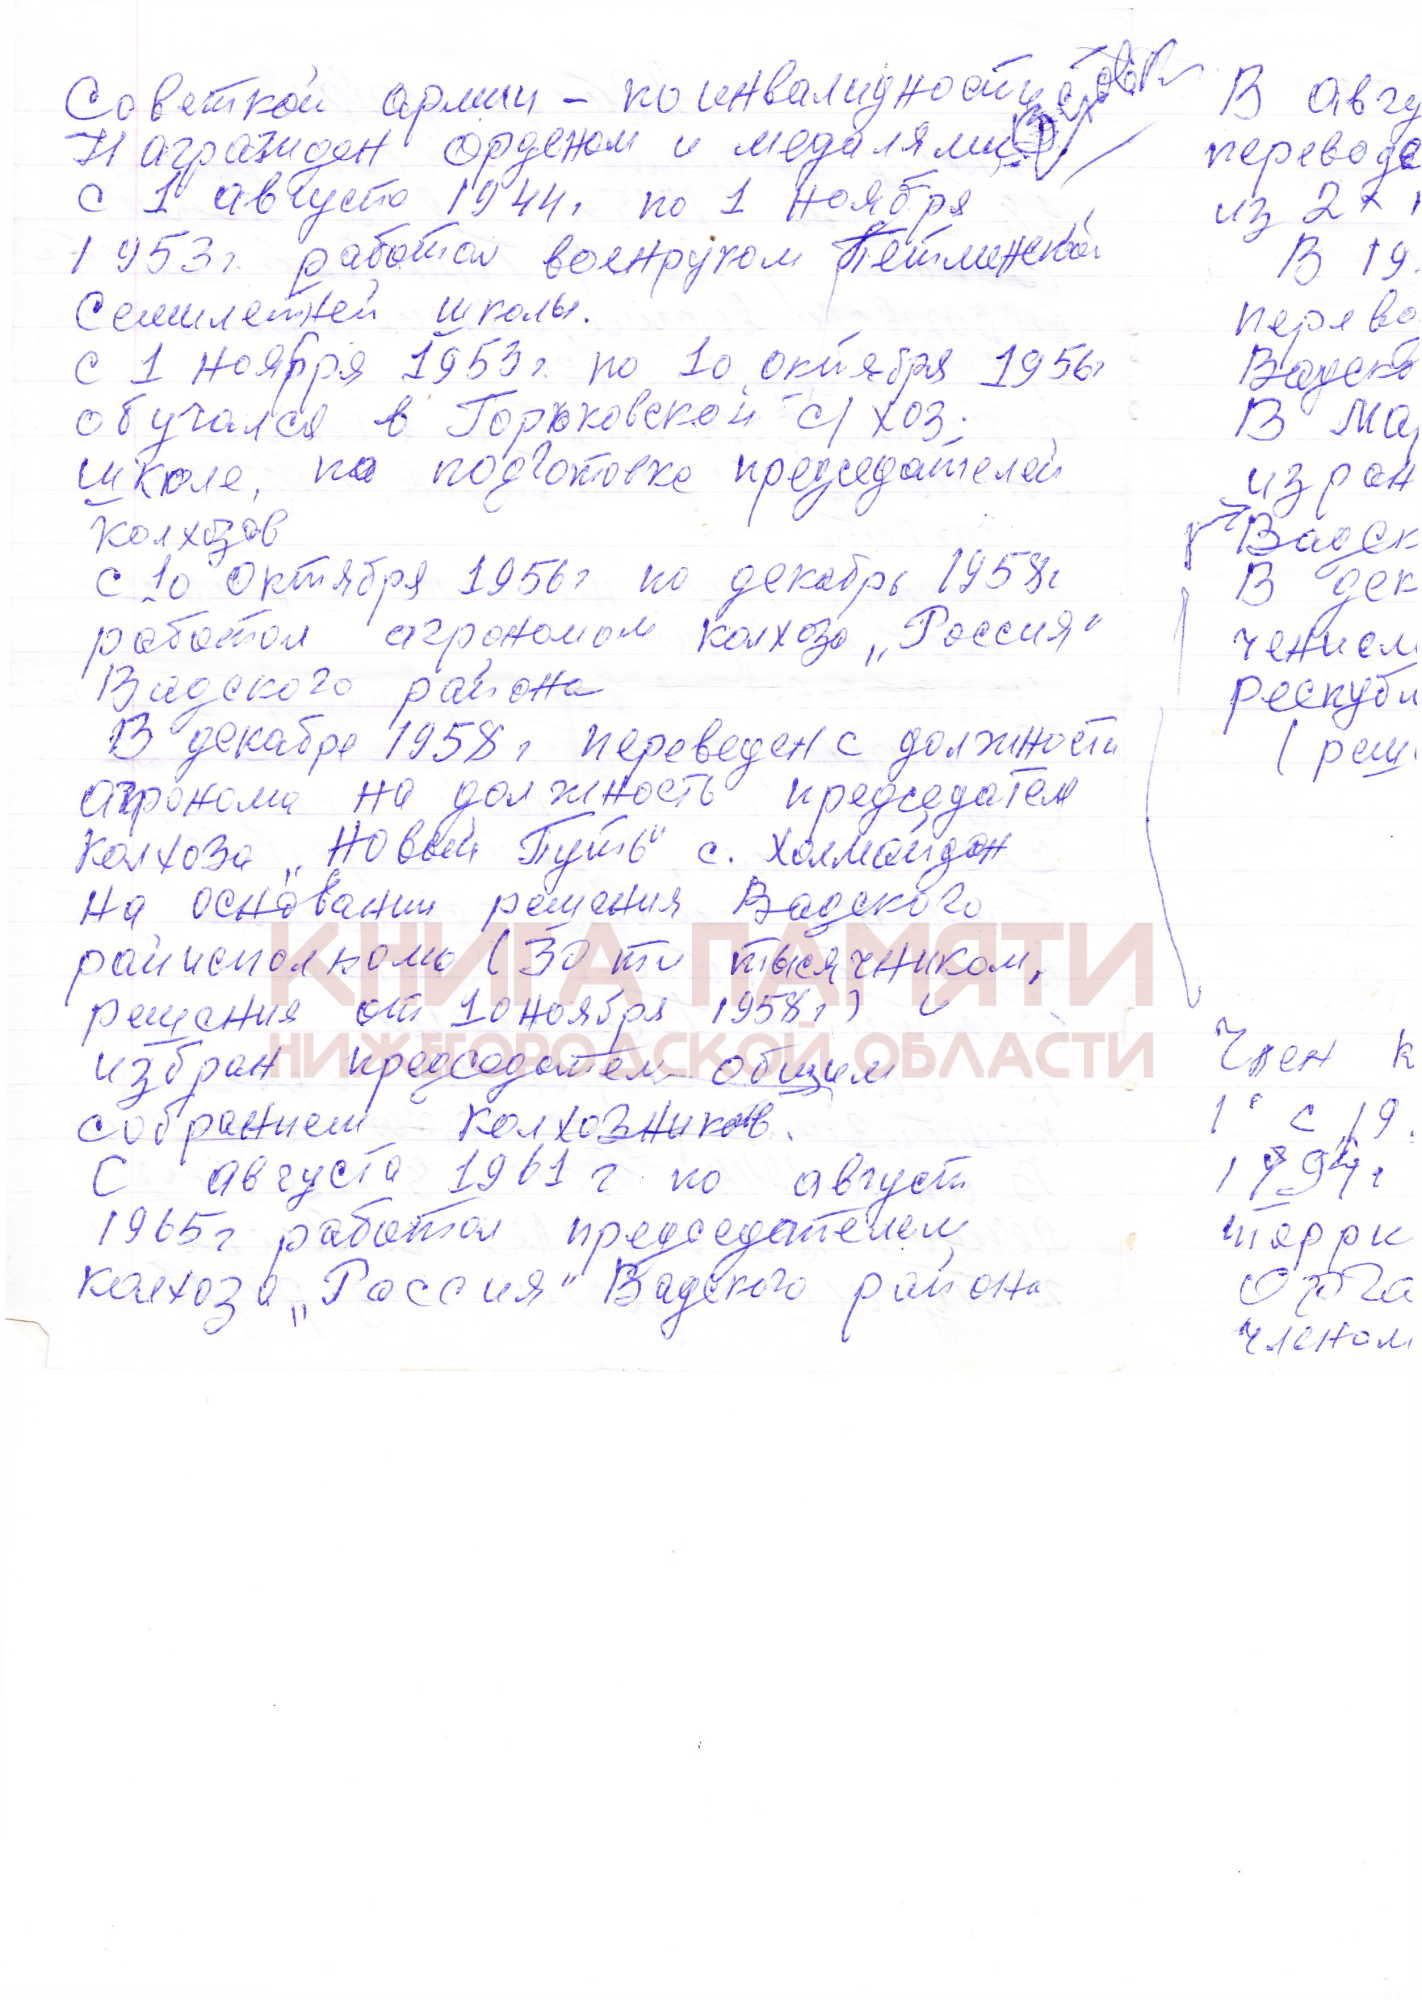 Советкой армии - по инвалидности
Награжден орденом и медалями
с 1 августа 1944г по 1 ноября
1953г. работал военруком Петлинской
семилетней школы.
с 1 ноября 1953г по 10 октября 1956г
обучался в Горьковской с/хоз.
школе, по подготовке председателей
колхозов
с 10 октября 1956г по декабрь 1958г
работал агрономом колхоза „Россия"
Вадского района
В декабре 1958г переведен с должности
агронома на должность председателя
колхоза „Новый Путь" с. Холмайдан
на основании решения Вадского
райисполкома (30 ти тысячником,
решения от 10 ноября 1958г) и
избран председателем общим
собранием колхозников.
С августа 1961г по август
1965г работал председателем
колхоза „Россия" Вадского района
В авгу
переводе
из 2х
В 19
перево
Вадско
В мар
избран
Вадск
В дек
чением
республ
(реш
Член к
1 с 19
террит
Орга
членом
КНИГА ПАМЯТИ
НИЖЕГОРОДСКОЙ ОБЛАСТИ